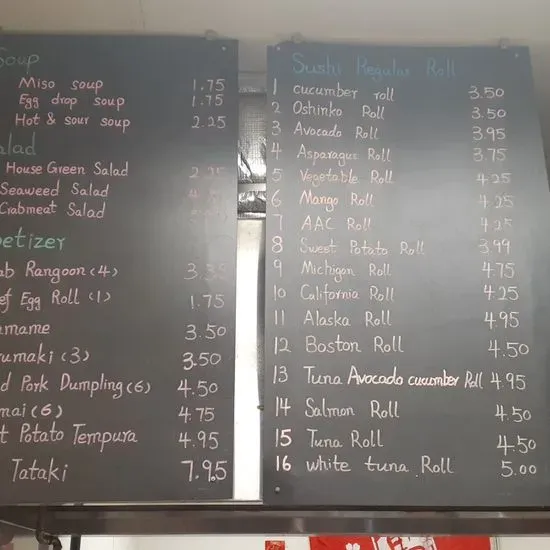 Soup
Miso soup 1.75
Egg drop soup 1.75
Hot & sour soup 2.25
alad
House Green Salad 2.25
Seaweed Salad
Crabmeat Salad
petizer
ab Rangoon (4) 3.35
ef Egg Roll (1) 1.75
mame 3.50
umaki (3) 3.50
d Pork Dumpling (6) 4.50
mai (6) 4.75
t Potato Tempura 4.95
Tataki 7.95
Sushi Regular Roll
1 cucumber roll 3.50
2 Oshinko Roll 3.50
3 Avocado Roll 3.95
4 Asparagus Roll 3.75
5 Vegetable Roll 4.25
6 Mango Roll 4.25
7 AAC Roll 4.25
8 Sweet Potato Roll 3.99
9 Michigan Roll 4.75
10 California Roll 4.25
11 Alaska Roll 4.95
12 Boston Roll 4.50
13 Tuna Avocado cucumber Roll 4.95
14 Salmon Roll 4.50
15 Tuna Roll 4.50
16 white tuna Roll 5.00